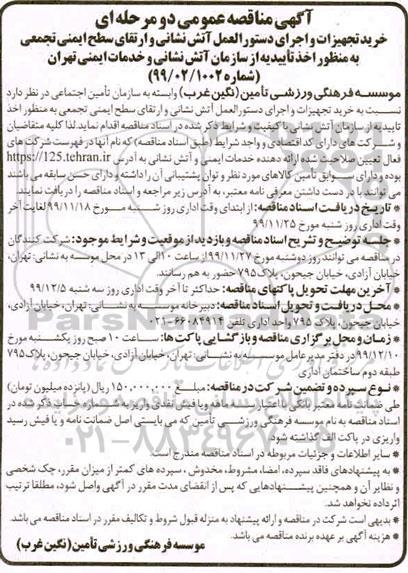 آگهی مناقصه عمومی دو مرحله ای
خرید تجهیزات و اجرای دستورالعمل آتش نشانی و ارتقای سطح ایمنی تجمعی
به منظور اخذ تأییدیه از سازمان آتش نشانی و خدمات ایمنی تهران
(شماره ۹۹/۰۲/۱۰۰۲)
موسسه فرهنگی ورزشی تأمین (نگین غرب) وابسته به سازمان تأمین اجتماعی در نظر دارد
نسبت به خرید تجهیزات و اجرای دستورالعمل آتش نشانی و ارتقای سطح ایمنی تجمعی به منظور اخذ
تاییدیه از سازمان آتش نشانی با کیفیت و شرایط ذکر شده در اسناد مناقصه اقدام نماید. لذا کلیه متقاضیان
و شرکت های دارای کد اقتصادی و واجد شرایط (طبق اسناد مناقصه) که نام آنها در فهرست شرکت های
فعال تعیین صلاحیت شده ارائه دهنده خدمات ایمنی و آتش نشانی به آدرس https://125.tehran.ir
بوده و دارای سوابق تأمین کالاهای مورد نظر و توان پشتیبانی آن را داشته و دارای حسن سابقه می باشند
می توانند با در دست داشتن معرفی نامه معتبر، به آدرس زیر مراجعه و اسناد مناقصه را دریافت نمایند.
* تاریخ دریافت اسناد مناقصه: از ابتدای وقت اداری روز شنبه مورخ ۹۹/۱۱/۱۸ لغایت آخر
وقت اداری روز شنبه مورخ ۹۹/۱۱/۲۵
* جلسه توضیح و تشریح اسناد مناقصه و بازدید از موقعیت و شرایط موجود: شرکت کنندگان
در مناقصه می توانند روز دوشنبه مورخ ۹۹/۱۱/۲۷ از ساعت ۱۰ الی ۱۲ در محل موسسه به نشانی: تهران،
خیابان آزادی، خیابان جیحون، پلاک ۷۹۵ حضور به هم رسانند.
* آخرین مهلت تحویل پاکتهای مناقصه: حداکثر تا آخر وقت اداری روز سه شنبه ۹۹/۱۲/۵
* محل دریافت و تحویل اسناد مناقصه: دبیرخانه موسسه به نشانی: تهران، خیابان آزادی،
خیابان جیحون، پلاک ۷۹۵ واحد اداری تلفن ۶۶۰۸۴۹۱۴-۰۲۱
* زمان و محل برگزاری مناقصه و بازگشایی پاکت ها: ساعت ۱۰ صبح روز یکشنبه مورخ
۹۹/۱۲/۱۰ در دفتر مدیرعامل موسسه به نشانی: تهران، خیابان آزادی، خیابان جیحون، پلاک ۷۹۵
طبقه دوم ساختمان اداری
* نوع سپرده و تضمین شرکت در مناقصه: مبلغ ۱۵۰,۰۰۰,۰۰۰ ریال (پانزده میلیون تومان)
طی ضمانت نامه معتبر بانکی با اعتبار سه ماهه و یا فیش نقدی واریز به شماره حساب ذکر شده در
اسناد مناقصه به نام موسسه فرهنگی ورزشی تأمین که می بایستی اصل ضمانت نامه و یا فیش رسید
واریزی در پاکت الف گذاشته شود.
* سایر اطلاعات و جزئیات مربوطه در اسناد مناقصه مندرج است.
* به پیشنهادهای فاقد سپرده، امضا، مشروط، مخدوش، سپرده های کمتر از میزان مقرر، چک شخصی
و نظایر آن و همچنین پیشنهادهایی که پس از انقضای مدت مقرر در آگهی واصل شود، مطلقا ترتیب
اثر داده نخواهد شد.
* بدیهی است شرکت در مناقصه و ارائه پیشنهاد به منزله قبول شروط و تکالیف مقرر در اسناد مناقصه می باشد.
* هزینه آگهی بر عهده برنده مناقصه می باشد.
موسسه فرهنگی ورزشی تأمین (نگین غرب)
ParsNamadData
۰۲۱-۸۸۳۴۹۶۷۰